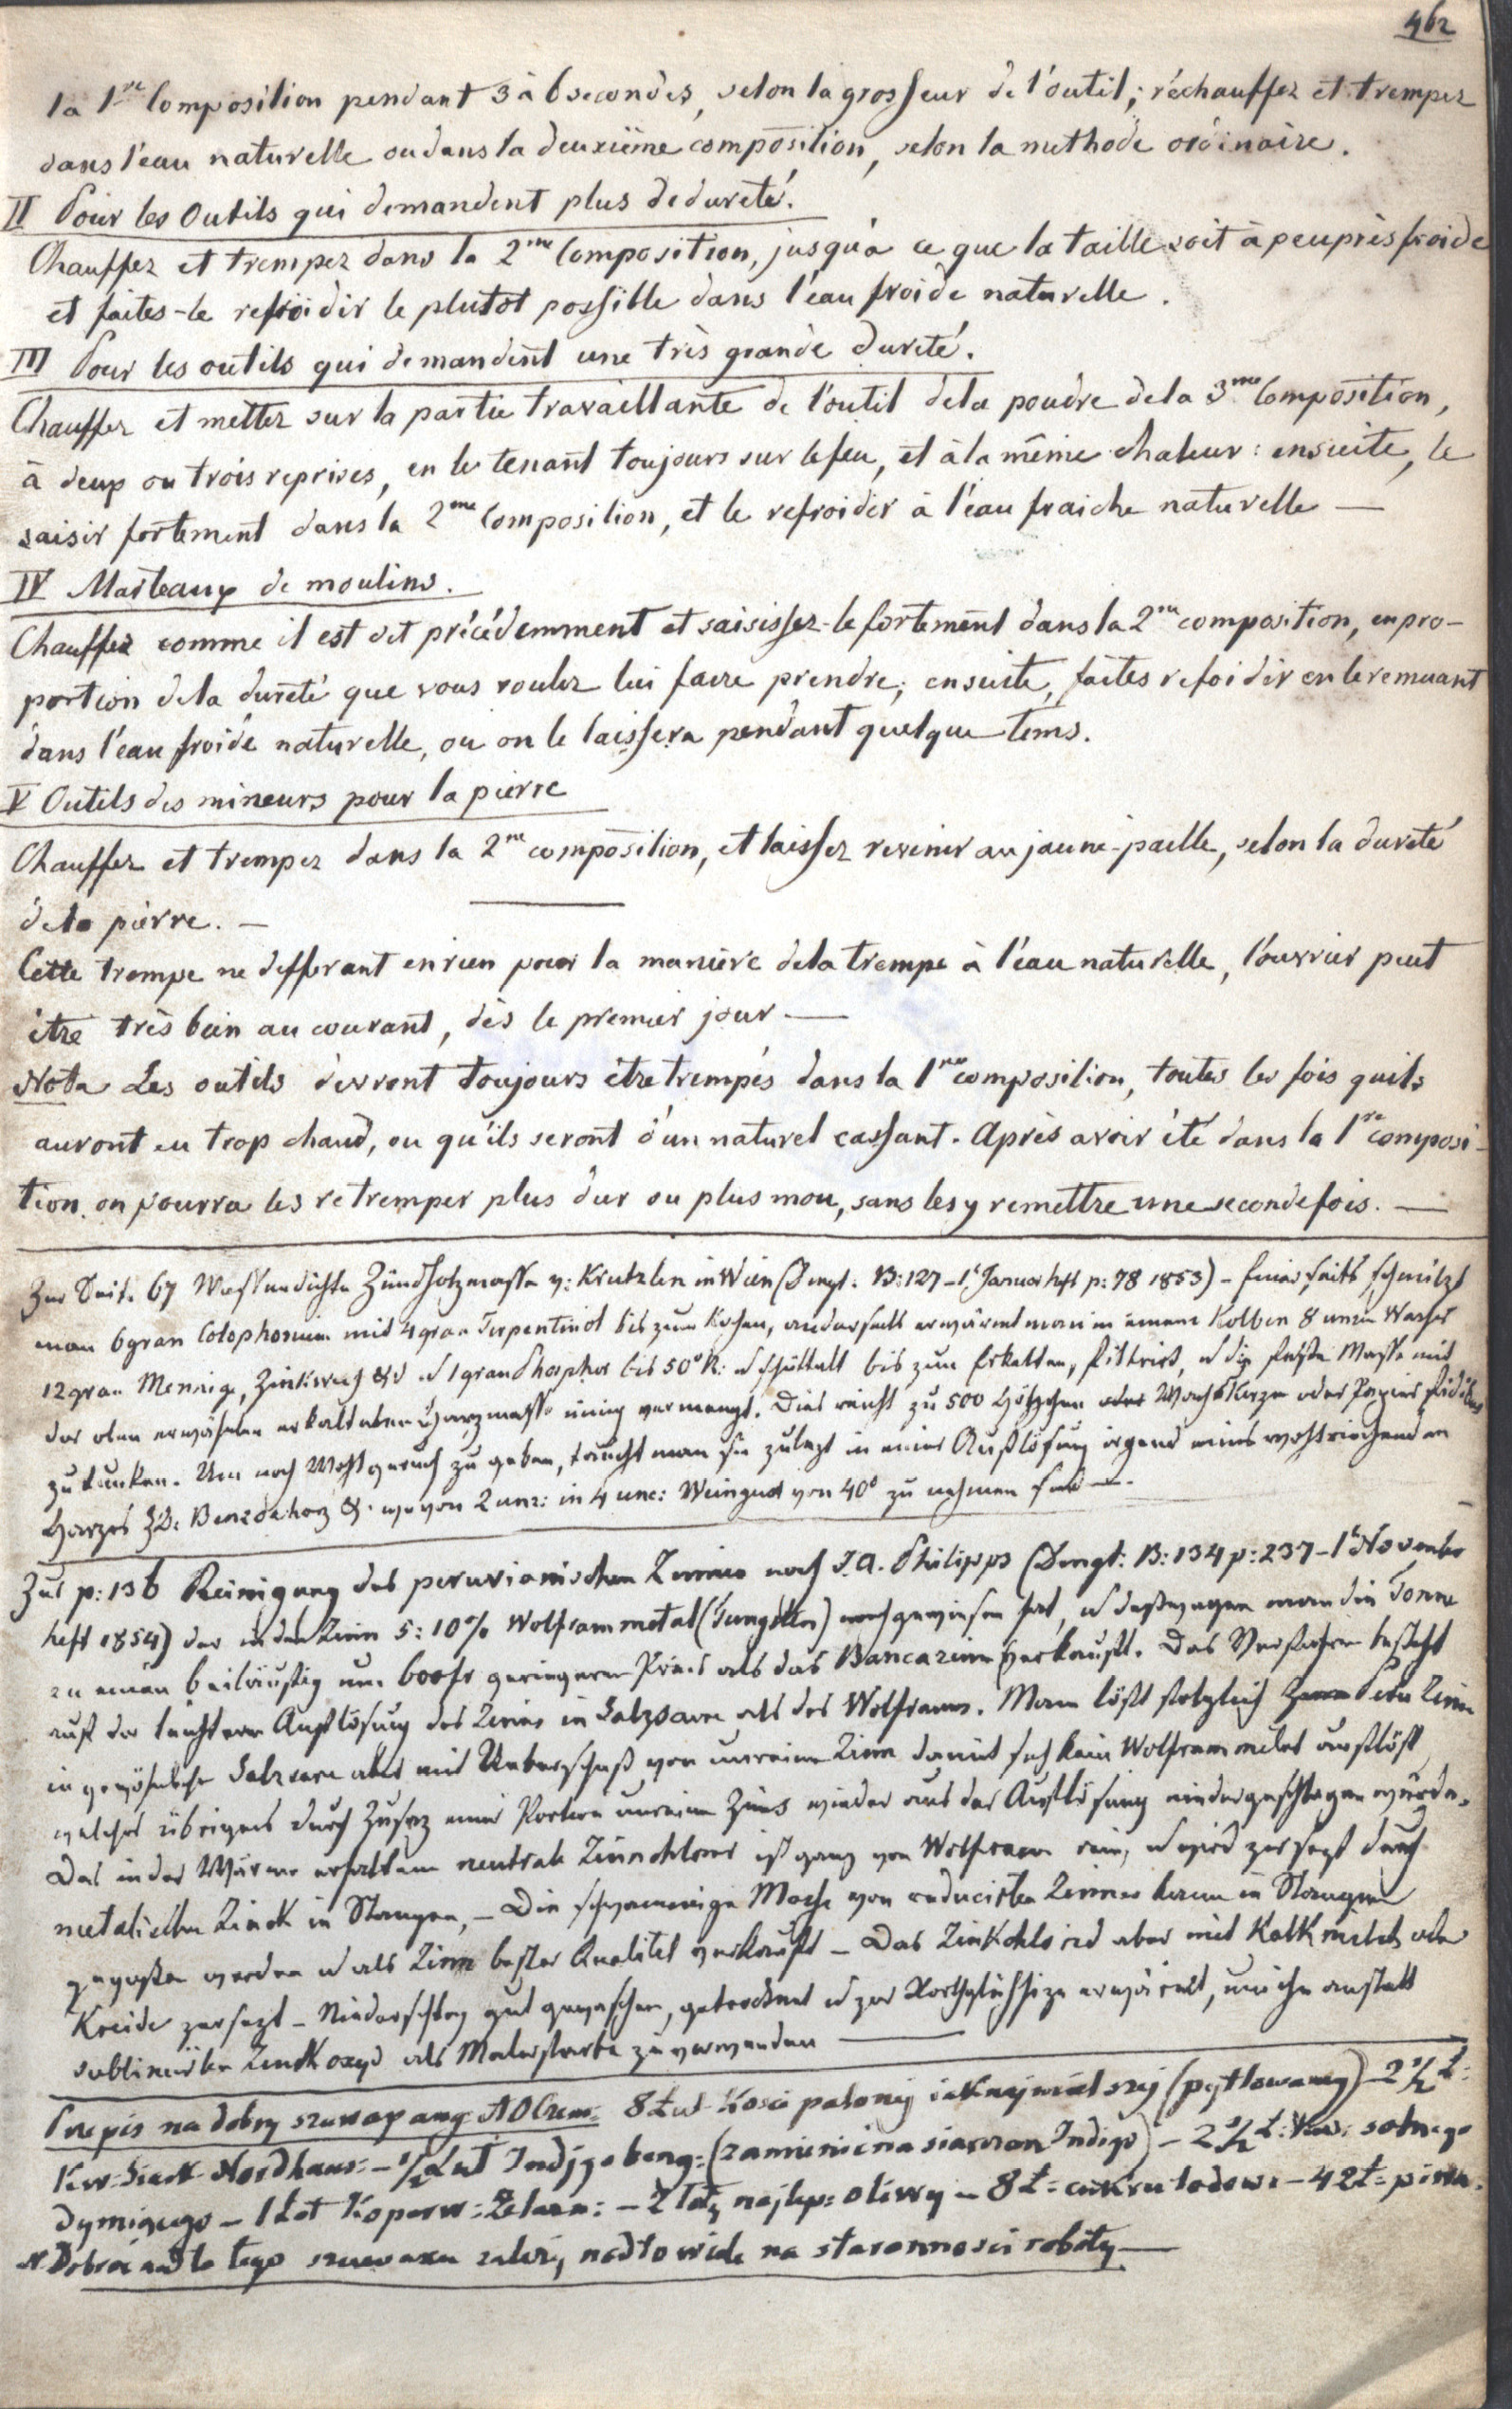 462
la 1re Composition pendant 3 à 6 secondes, selon la grosseur de l'outil; réchauffez et trempez
dans l'eau naturelle ou dans la deuxiëme composition, selon la methode ordinaire.
II Pour les Outils qui demandent plus de dureté.
Chauffez et trempez dans la 2me Composition, jusqu'a ce que la taille soit à peuprès froide
et faites-le refroidir le plutot possible dans l'eau froide naturelle.
III Pour les outils qui demandent une très grande dureté.
Chauffez et mettez sur la partie travaillante de l'outil dela poudre dela 3me Composition,
à deux ou trois reprises, en le tenant toujours sur le feu, et à la même chaleur: ensuite, le
saisir fortement dans la 2me Composition, et le refroidir à l'eau fraiche naturelle —
IV Marteaux de moulins.
Chauffez comme il est dit précédemment et saisissez-le fortement dans la 2me composition, en pro-
portion dela dureté que vous voulez lui faire prendre; ensuite, faites refoidir en le remuant
dans l'eau froide naturelle, ou on le laissera pendant quelque tems.
V Outils des mineurs pour la pierre
Chauffez et trempez dans la 2me composition, et laissez revenir au jaune-paille, selon la dureté
dela pierre. —
Cette trempe ne differant en rien pour la manière dela trempe à l'eau naturelle, l'ouvrier peut
être très bien au courant, dès le premier jour —
Nota Les outils devront toujours être trempés dans la 1re composition, toutes les fois quils
auront eu trop chaud, ou qu'ils seront d'un naturel cassant. Après avoir été dans la 1re composi-
tion on pourra les retremper plus dur ou plus mou, sans les y remettre une seconde fois. —
Zur Seite 67 Wasserdichte Zündholzmasse v: Krutzler in Wien (Dingl: B: 127 – 1s Januarheft p: 78 1853) – Einerseits schmilzt
man 6 gran Colophonium mit 4 gran Terpentinöl bis zum Kochen, anderseits erwärmt man in einem Kolben 8 unzen Wasser
12 gran Mennige, Zinkweiß &d u 1 gran Phosphor bis 50° R: u schüttelt bis zum Erkalten, filtrirt, u die feste Masse mit
der oben erwähnten erkalteten Harzmasse innig vermengt. Dies reicht zu 500 Hölzchen oder Wachskerzen oder Papier fidibus
zu tunken. Um noch Wohlgeruch zu geben, taucht man sie zuletzt in einer Außlösung irgend eines wohlriechenden
Harzes ZB: Benzoeharz &. wovon 2 unz: in 4 unc: Weingeist von 40° zu nehmen sind —.
Zur p: 136 Reinigung des peruvianischen Zinnes nach J. A. Philipps (Dingl: B: 134 p: 237 – 1s November
heft 1854) der in dem Zinn 5: 10% Wolframmetal (Tungsten) nachgewiesen hat, u deßwegen man die Tonne
zu einem beiläufig um 600fr geringeren Preis als das Bancazinn verkauft. Das Verfahren besteht
auf der leichteren Auflösung des Zinns in Salzsäure als des Wolframs. Man lößt folglich Peru Zinn
in gewöhnlicher Salzsäure aber mit Ueberschuß von unreinem Zinn damit sich kein Wolframmetal auflößt
welches übrigens durch Zusaz einer Portion unreinen Zinns wieder aus der Auflösung niedergeschlagen würde.
Das in der Wärme erhaltene neutrale Zinnchlorür ist ganz von Wolfram rein, u wird zersezt durch
metallischen Zinck in Stangen, – Die schwammige Masse von reducirten Zinnes kann in Stangen
gegoßen werden u als Zinn bester Qualitet verkauft – Das Zinkchlorid aber mit Kalkmilch oder
Kreide zersezt – Niederschlag gut gewaschen, getrocknet u zur Rothglühhize erwärmt, um ihn anstatt
sublimirten Zinkoxyd als Malerfarbe zu verwenden —
Przepis na dobry szuwax ang: 8 Łut Kosci paloney iaknaymialszey (pytlowaney) – 2 1/2 Ł:
Kw: Siark Nordhaus: – 1/2 Łut Indygo beng: (zamienic na siarczan Indigo) – 2 1/2 Ł: Kw: solnego
dymiącego – 1 Łot Koperw: Żelazn: – 2 Łoty najlep: oliwy – 8 Ł= cukru lodow: – 42 Ł= piwa.
N. Dobroć tego szuwaxu zależy nadto wiele na staronności roboty —